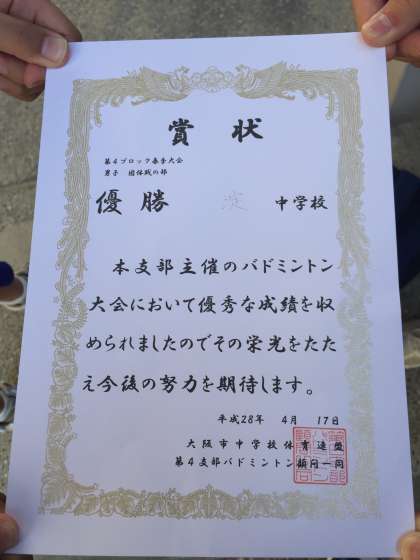 賞状
第4ブロック春季大会
男子 団体戦の部
優勝 淀 中学校
本支部主催のバドミントン
大会において優秀な成績を収
められましたのでその栄光をたた
え今後の努力を期待します。
平成28年 4月 17日
大阪市中学校体育連盟
第4支部バドミントン顧問一同